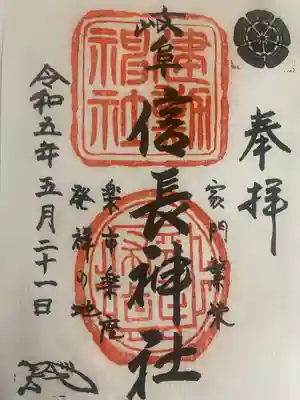 奉拝
家門繁栄
岐阜信長神社
楽市楽座
発祥の地
令和五年五月二十一日